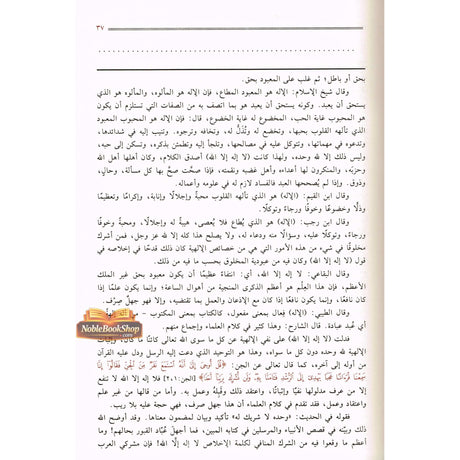 ٣٧
بحق أو باطل؛ ثم غلب على المعبود بحق.
وقال شيخ الإسلام: الإله هو المعبود المطاع، فإن الإله هو المألوه، والمألوه هو الذي
يستحق أن يعبد. وكونه يستحق أن يعبد هو بما اتصف به من الصفات التي تستلزم أن يكون
هو المحبوب غاية الحب، المخضوع له غاية الخضوع، قال: فإن الإله هو المحبوب المعبود
الذي تألهه القلوب بحبها، وتخضع له وتُذَلُّ له، وتخافه وترجوه. وتنيب إليه في شدائدها،
وتدعوه في مهماتها، وتتوكل عليه في مصالحها، وتلجأ إليه وتطمئن بذكره، وتسكن إلى حبه،
وليس ذلك إلا لله وحده، ولهذا كانت (لا إله إلا الله) أصدق الكلام، وكان أهلها أهل الله
وحزبَه، والمنكرون لها أعداءه وأهل غضبه ونقمته، فإذا صحَّت صحَّ بها كل مسألة، وحالٍ،
وذوق. وإذا لم يُصححها العبد فالفساد لازم له في علومه وأعماله.
وقال ابن القيم: (الإله) هو الذي تألهه القلوب محبة وإجلالًا، وإنابة، وإكرامًا وتعظيمًا
وذلًّا وخضوعًا وخوفًا ورجاءً وتوكلًا.
وقال ابن رجب: (الإله) هو الذي يُطاع فلا يُعصى، هيبةً له وإجلالًا، ومحبةً وخوفًا
ورجاءً، وتوكلًا عليه، وسؤالًا منه ودعاء له، ولا يصلح هذا كله إلا لله عز وجل، فمن أشرك
مخلوقًا في شيء من هذه الأمور التي هي من خصائص الإلهية كان ذلك قدحًا في إخلاصه في
قول (لا إله إلا الله) وكان فيه من عبودية المخلوق بحسب ما فيه من ذلك.
وقال البقاعي: لا إله إلا الله، أي: انتفاءً عظيمًا أن يكون معبود بحق غير الملك
الأعظم، فإن هذا العِلْم هو أعظم الذكرى المنجية من أهوال الساعة؛ وإنما يكون علمًا إذا
كان نافعًا، وإنما يكون نافعًا إذا كان مع الإذعان والعمل بما تقتضيه، وإلا فهو جهلٌ صِرْف.
وقال الطيبي: (الإله) فِعال بمعنى مفعول، كالكتاب بمعنى المكتوب
أي عُبد عبادة. قال الشارح: وهذا كثير في كلام العلماء، وإجماع منهم.
فدلت (لا إله إلا الله) على نفي الإلهية عن كل ما سوى الله تعالى كائنًا ما كان، وإثبات
الإلهية لله وحده دون كل ما سواه، وهذا هو التوحيد الذي دعت إليه الرسل ودل عليه القرآن
من أوله إلى آخره، كما قال تعالى عن الجن: ﴿قُلْ أُوحِيَ إِلَيَّ أَنَّهُ اسْتَمَعَ نَفَرٌ مِنَ الْجِنِّ فَقَالُوا إِنَّا
سَمِعْنَا قُرْآنًا عَجَبًا يَهْدِي إِلَى الرُّشْدِ فَآمَنَّا بِهِ وَلَنْ نُشْرِكَ بِرَبِّنَا أَحَدًا﴾ [الجن: ١، ٢] فلا إله إلا الله لا تنفع
إلا من عرف مدلولها نفيًا وإثباتًا، واعتقد ذلك وقَبِلَه وعمل به. وأما من قالها من غير علم
واعتقاد وعمل، فقد تقدم في كلام العلماء أن هذا جهل صرف، فهي حجة عليه بلا ريب.
فقوله في الحديث: «وحده لا شريك له» تأكيد وبيان لمضمون معناها. وقد أوضح الله
ذلك وبيَّنه في قصص الأنبياء والمرسلين في كتابه المبين، فما أجهلَ عُبَّاد القبور بحالهم! وما
أعظم ما وقعوا فيه من الشرك المنافي لكلمة الإخلاص لا إله إلا الله! فإن مشركي العرب
NobleBookShop
.com